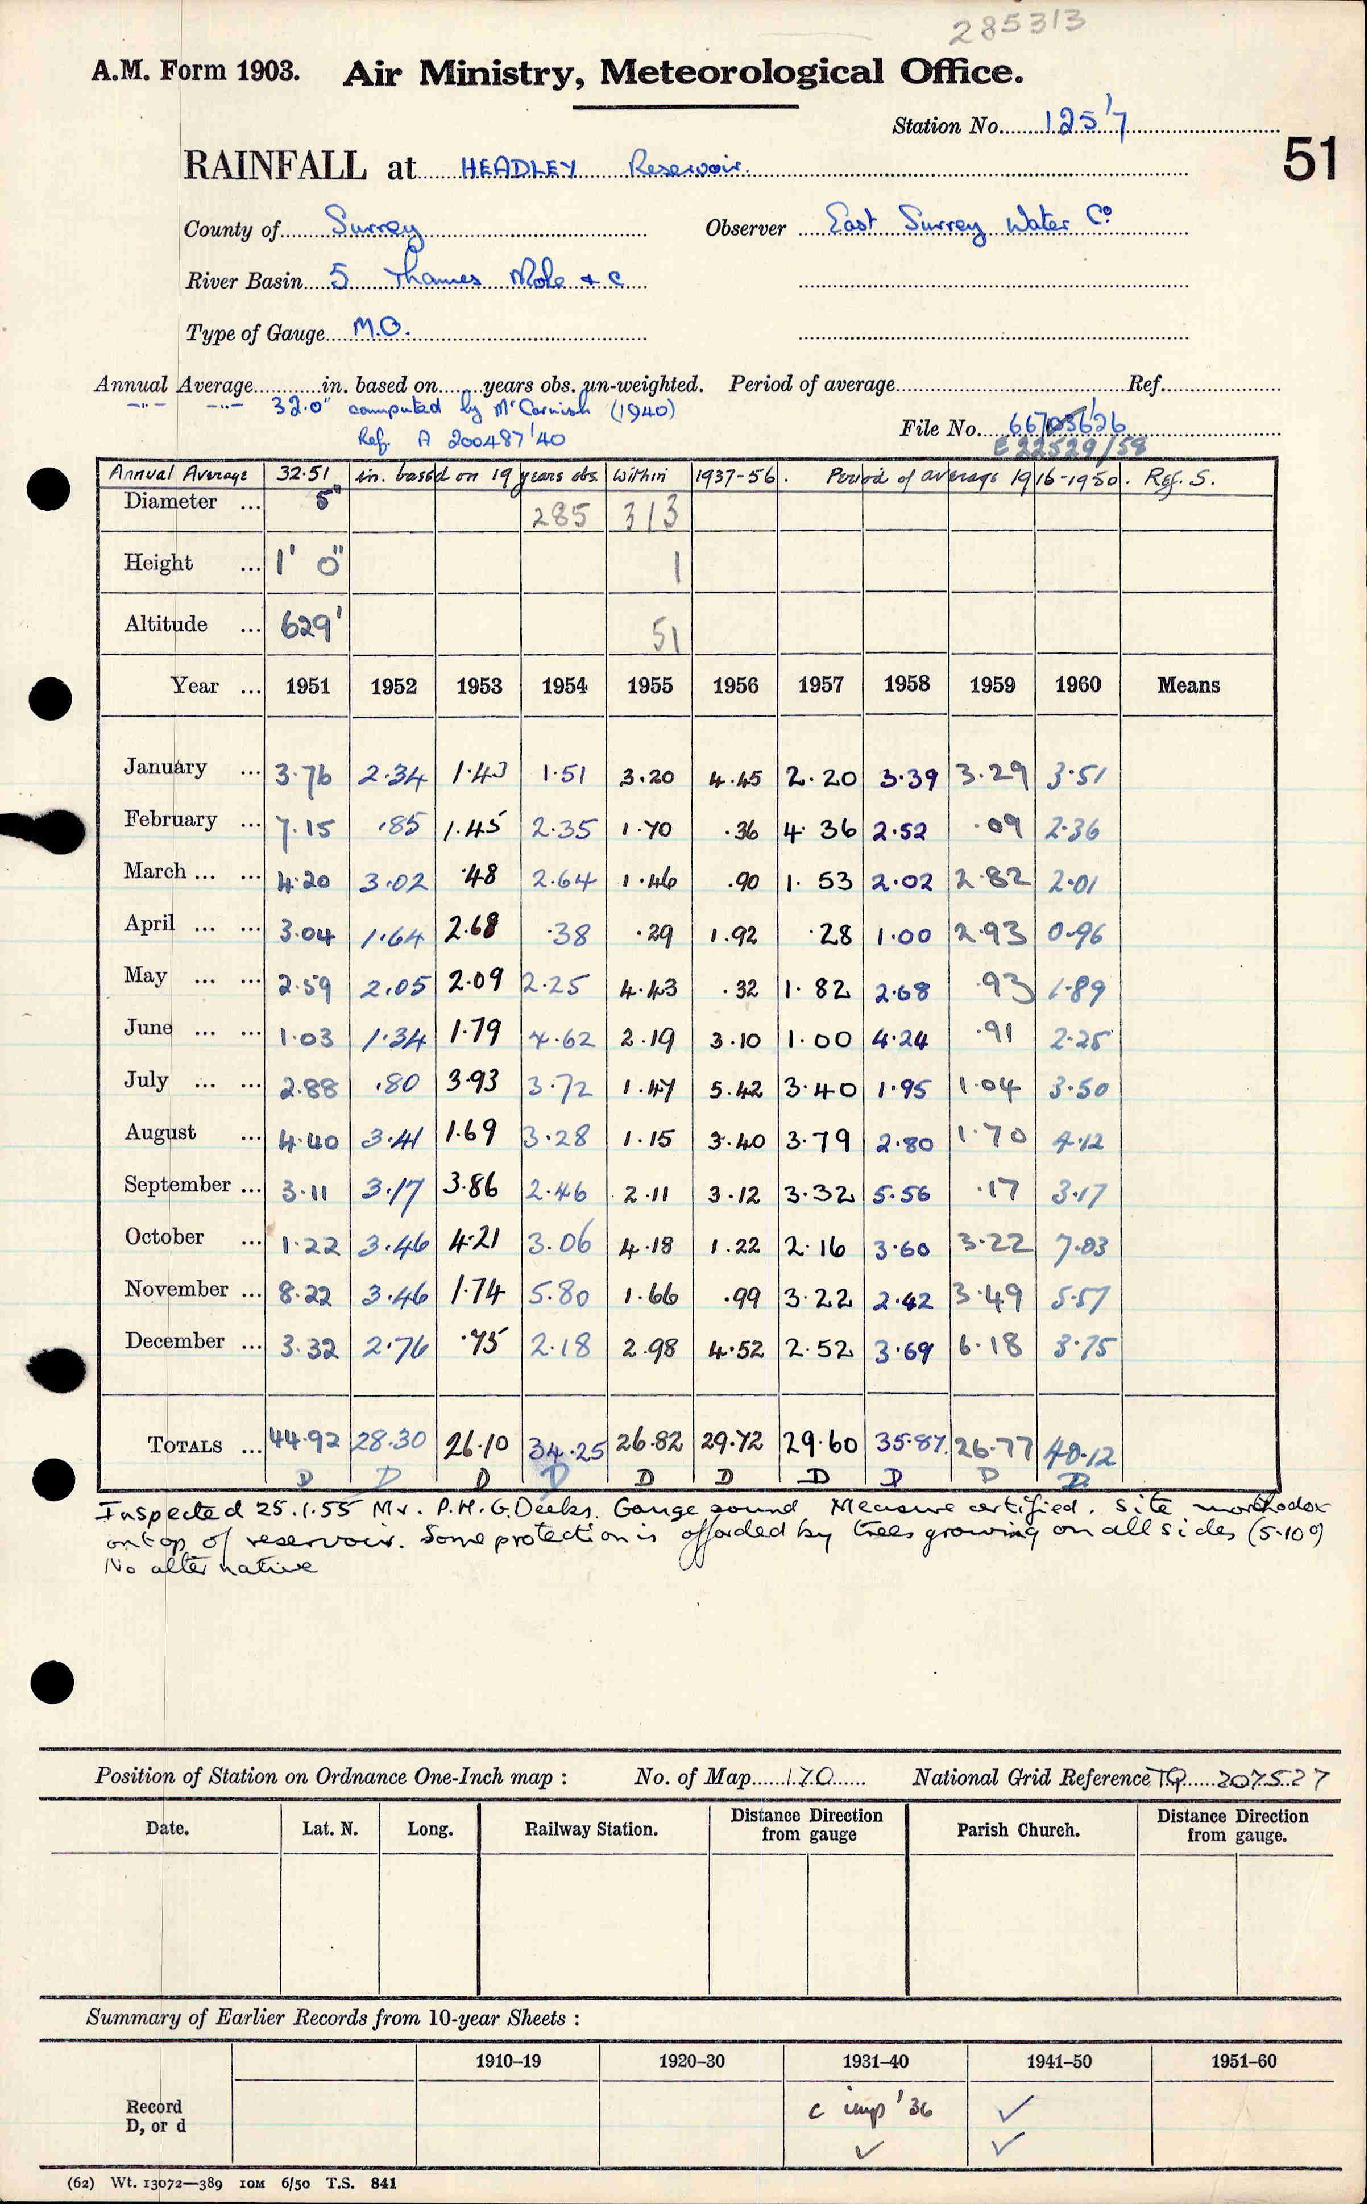 285313
A.M. Form 1903. Air Ministry, Meteorological Office.
Station No. 125/7
51
RAINFALL at HEADLEY Reservoir.
County of Surrey Observer East Surrey Water Co
River Basin 5 Thames Mole & c
Type of Gauge M.O.
Annual Average in. based on years obs. un-weighted. Period of average Ref.
-"- -"- 32.0" computed by Mr Carnish (1940)
Ref. A 200487/40
File No.
E 22529/58
Annual Average 32.51 in. based on 19 years obs. within 1937-56. Period of average 1916-1950. Ref. S.
Diameter ... 5" 285 313
Height ... 1' 0" 1
Altitude ... 629' 51
Year ... 1951 1952 1953 1954 1955 1956 1957 1958 1959 1960 Means
January ... 3.76 2.34 1.43 1.51 3.20 4.45 2.20 3.39 3.29 3.51
February ... 7.15 .85 1.45 2.35 1.70 .36 4.36 2.52 .09 2.36
March ... ... 4.20 3.02 .48 2.64 1.46 .90 1.53 2.02 2.82 2.01
April ... ... 3.04 1.64 2.68 .38 .29 1.92 .28 1.00 2.93 0.96
May ... ... 2.59 2.05 2.09 2.25 4.43 .32 1.82 2.68 .93 1.89
June ... ... 1.03 1.34 1.79 4.62 2.19 3.10 1.00 4.24 .91 2.25
July ... ... 2.88 .80 3.93 3.72 1.47 5.42 3.40 1.95 1.04 3.50
August ... 4.40 3.41 1.69 3.28 1.15 3.40 3.79 2.80 1.70 4.12
September ... 3.11 3.17 3.86 2.46 2.11 3.12 3.32 5.56 .17 3.17
October ... 1.22 3.46 4.21 3.06 4.18 1.22 2.16 3.60 3.22 7.03
November ... 8.22 3.46 1.74 5.80 1.66 .99 3.22 2.42 3.49 5.57
December ... 3.32 2.76 .75 2.18 2.98 4.52 2.52 3.69 6.18 3.75
TOTALS ... 44.92 28.30 26.10 34.25 26.82 29.72 29.60 35.87 26.77 40.12
D D D D D D D D D D
Inspected 25.1.55 Mr. P.H.G. Deeks. Gauge sound Measure certified. Site unorthodox
on top of reservoir. Some protection is afforded by trees growing on all sides (5-10°)
No alternative
Position of Station on Ordnance One-Inch map : No. of Map 170 National Grid Reference TQ 207527
Date. Lat. N. Long. Railway Station. Distance Direction from gauge Parish Church. Distance Direction from gauge.
Summary of Earlier Records from 10-year Sheets :
1910–19 1920–30 1931–40 1941–50 1951–60
Record D, or d c imp '36 ✓
✓ ✓
(62) Wt. 13072—389 10M 6/50 T.S. 841